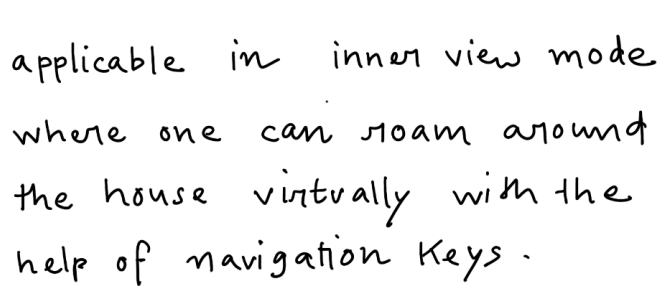 applicable in inner view mode
where one can roam around
the house virtually with the
help of navigation keys.